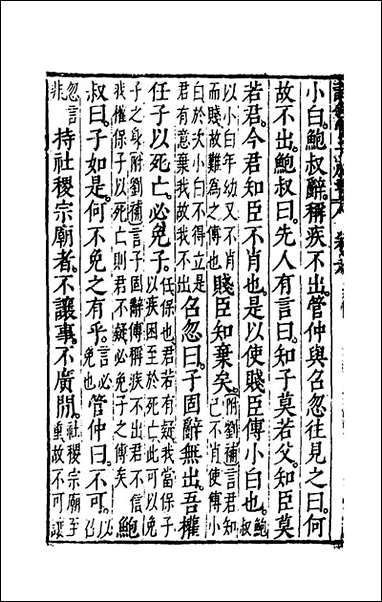 小白。鮑叔辭。稱疾不出。管仲與召忽往見之。曰。何
故不出。鮑叔曰。先人有言曰。知子莫若父。知臣莫
若君。今君知臣不肖也。是以使賤臣傅小白也。鮑叔
以小白年幼又不肖而賤故難為之傅也賤臣知棄矣。附劉補言君知己不肖使傅小
白於次小白不得立是君有意棄我故我不出召忽曰。子固辭無出。吾權
任子以死亡。必免子。任保也君若有疑我當保子以疾困至於死亡此可以免
子之身附劉補言子固辭傅稱疾不出君不信我權保子以死亡則君不疑必免子之傅矣鮑
叔曰。子如是。何不免之有乎。言必免也管仲曰。不可。以召
忽言非持社稷宗廟者。不讓事。不廣閒。社稷宗廟至重故不可讓